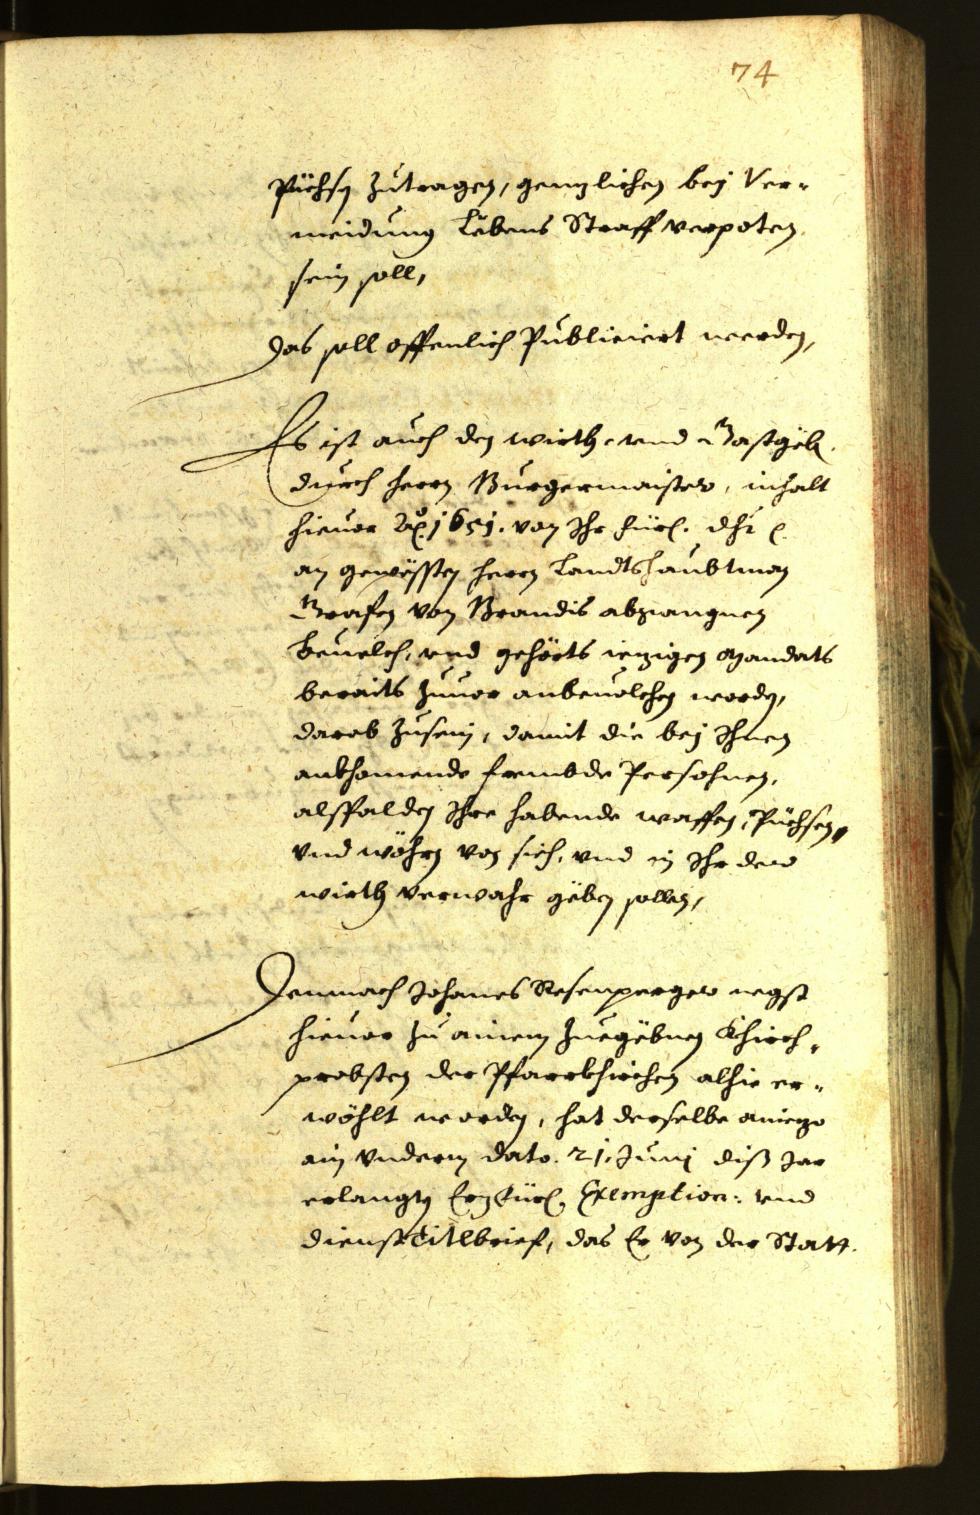 74
Püchsn zutragen, genzlichen bey Ver-
meidung Lebens Straff verpoten
sein soll,
Das soll offenlich Publiciert werden,
Es ist auch den wirth- vnd Gastgeb.
durch herrn Burgermaister, inhalt
hieuor 1651. von Ihr fürl. dht
an gewessten herrn Landtshaubtman
Grafen von Brandis abgangnen
beuelch, vnd gehörts iezigen mandats
beraits zuuor anbeuolchen worden,
darob zusein, damit die bey Ihnen
ankhomende frembde Persohnen,
alsspalden Ihre habende waffen, Püchsen,
vnd wöhrn von sich, vnd in Ihr der
wirth verwahr geben sollen,
Demnach Johanes Rosenperger negst
hieuor zu ainem zuegebnen Khirch-
probsten der Pfarrkhirchen alhie er-
wöhlt worden, hat derselbe aniezo
ain vnderm dato. 21. Juny diß Jar
erlangtn Erzfürl. Exemption: vnd
dienstTitlbrief, das Er von der Statt